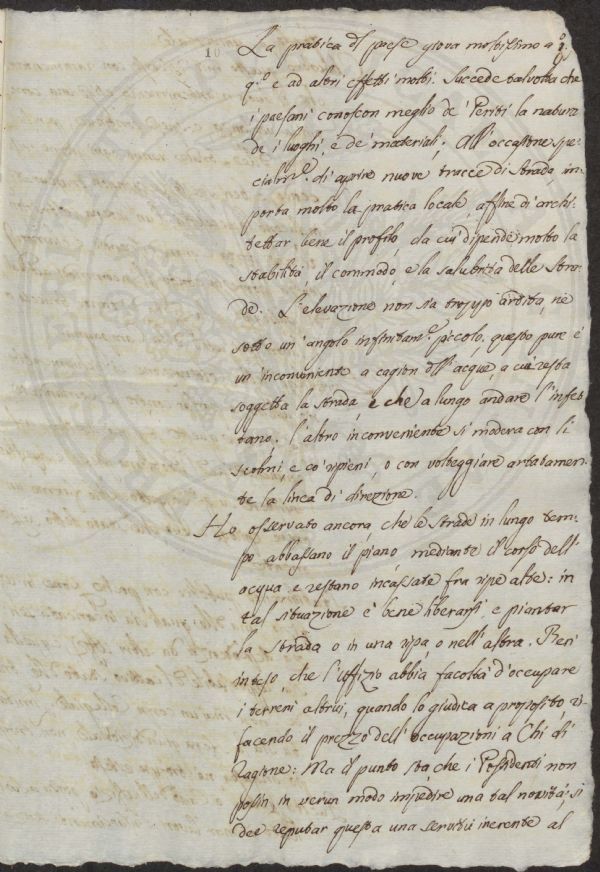 10
La pratica del paese giova moltissimo a
q.o e ad altri effetti molti. Succede talvolta che
i paesani conoscon meglio de' Periti la natura
de i luoghi, e de' materiali. All'occasione spe-
cialm.e di aprire nuove tracce di strada im-
porta molto la pratica locale, affine di archi-
tettar bene il profilo, da cui dipende molto la
stabilità, il commodo, e la salubrità delle Stra-
de. L'elevazione non sia troppo ardita, nè
sotto un'angolo infinitam.e piccolo, questo pure è
un'inconveniente a cagion dell'acque, a cui resta
soggetta la strada, e che a lungo andare l'infet-
tano. L'altro inconveniente si modera con li
scolini, e co' ripieni, o con volteggiare artatamen-
te la linea di direzione.
Ho osservato ancora, che le strade in lungo tem-
po abbassano il piano mediante il corso dell'
acqua, e restano incassate fra ripe alte: in
tal situazione è bene liberarsi, e piantar
la strada o in una ripa, o nell'altra. Ben
inteso, che l'Uffizio abbia facoltà d'occupare
i terreni altrui, quando lo giudica a proposito ri-
facendo il prezzo dell'occupazioni a Chi di
Ragione: Ma il punto sta, che i Possidenti non
possin in verun modo impedire una tal novità; si
dee reputar questa una servitù inerente al